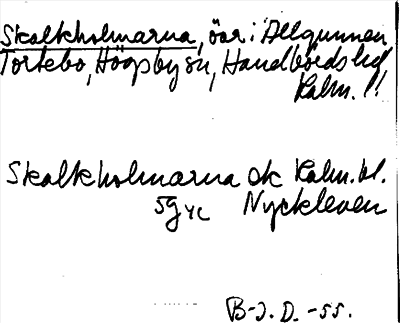 Skalkholmarna, öar i Allgunnen
Tortebo, Högsby sn, Handbörds hd
Kalm. l.
Skalkholmarna ek Kalm. bl.
5g yc Nyckleven
B-J. D. -55.